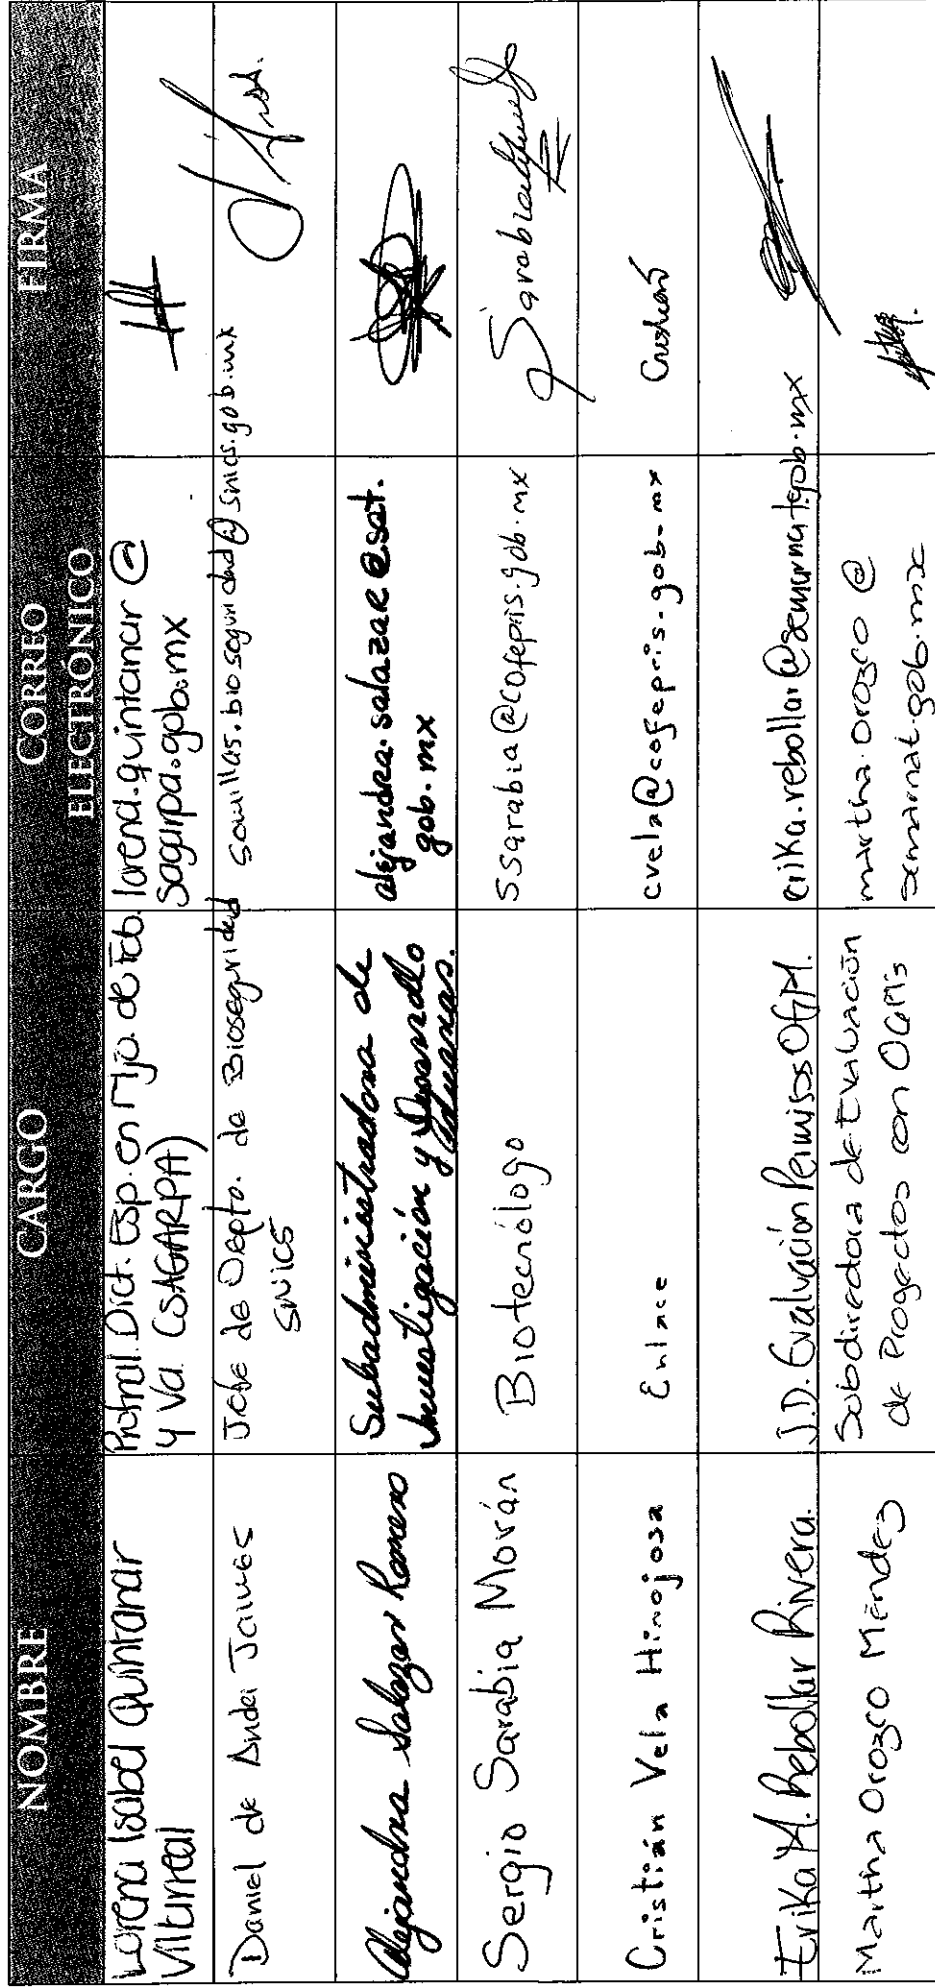 NOMBRE
CARGO
CORREO
ELECTRÓNICO
FIRMA
Lorena Isabel Quintanar
Villarreal
Dict. Esp. en Mjo. de
y Va. (SAGARPA)
lorena.quintanar@
sagarpa.gob.mx
Daniel de Andei Jaimes
Jefe de Depto. de Bioseguridad
SNICS
semillas.bioseguridad@snics.gob.mx
Alejandra Salazar Romero
Subadministradora de
Investigación y Desarrollo
Aduanas.
alejandra.salazar@sat.
gob.mx
Sergio Sarabia Morán
Biotecnólogo
ssarabia@cofepris.gob.mx
Cristián Vela Hinojosa
Enlace
cvela@cofepris.gob.mx
Cristián
Erika M. Rebollar Rivera.
J.D. Evaluación Permisos OGM.
erika.rebollar@semarnat.gob.mx
Martha Orozco Méndez
Subdirectora de Evaluación
de Proyectos con OGMs
martha.orozco@
semarnat.gob.mx